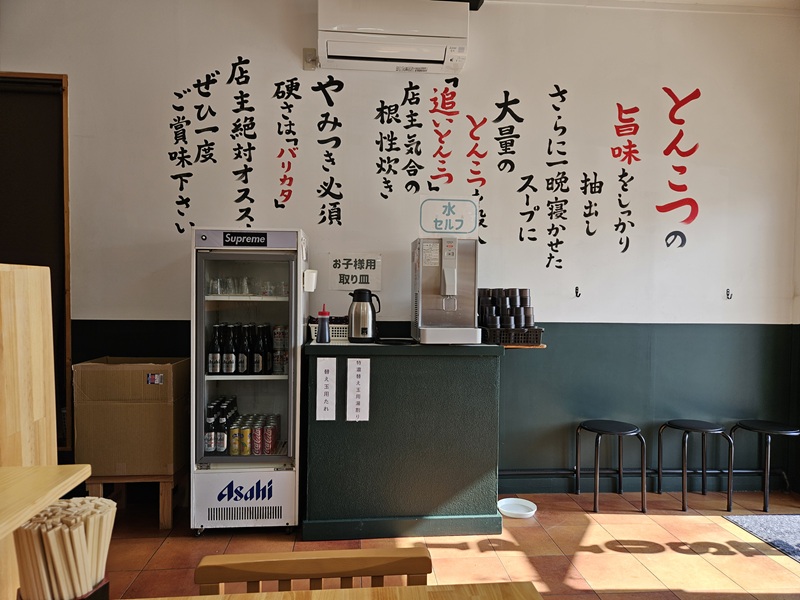 とんこつの
旨味をしっかり
抽出し
さらに一晩寝かせた
スープに
大量の
とんこつ
「追いとんこつ」
店主気合の
根性炊き
やみつき必須
硬さは「バリカタ」
店主絶対オススメ
ぜひ一度
ご賞味下さい
水
セルフ
お子様用
取り皿
Supreme
Asahi
替え玉用たれ